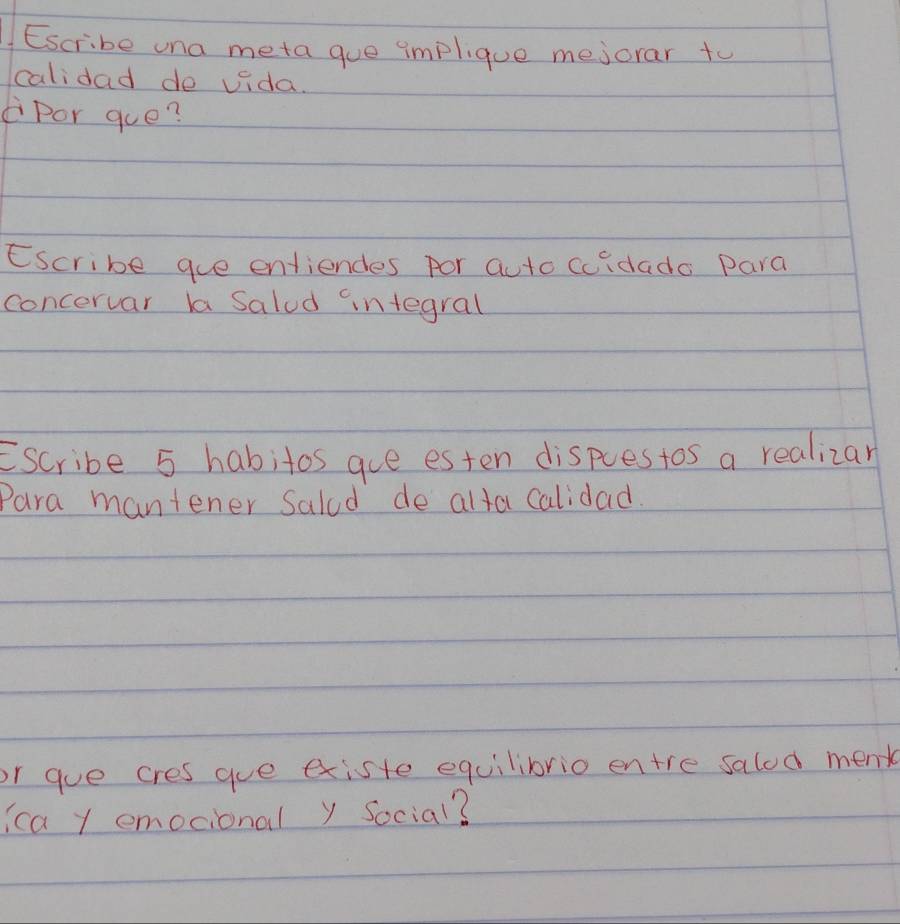 Escribe una meta que implique mejorar tu
calidad de vida.
¿Por que?
Escribe que entiendes por auto cuidado para
concervar la salud integral
Escribe 5 habitos que esten dispuestos a realizar
Para mantener salud de alta calidad.
or que cres que existe equilibrio entre salud ment
ica y emocional y social?